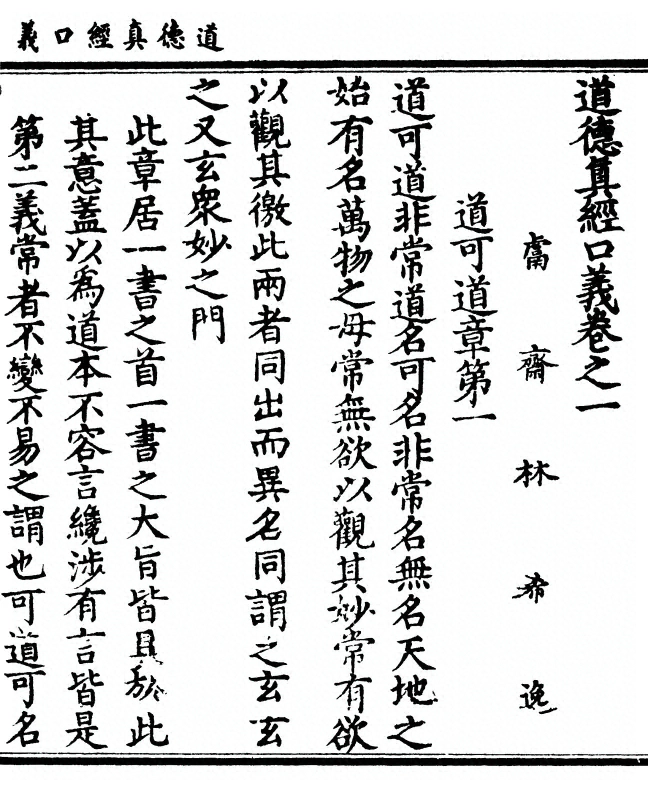 道德真經口義
道德真經口義卷之一
鬳齋林希逸
道可道章第一
道可道非常道名可名非常名無名天地之
始有名萬物之母常無欲以觀其妙常有欲
以觀其徼此兩者同出而異名同謂之玄玄
之又玄衆妙之門
此章居一書之首一書之大旨皆具於此
其意蓋以爲道本不容言纔涉有言皆是
第二義常者不變不易之謂也可道可名